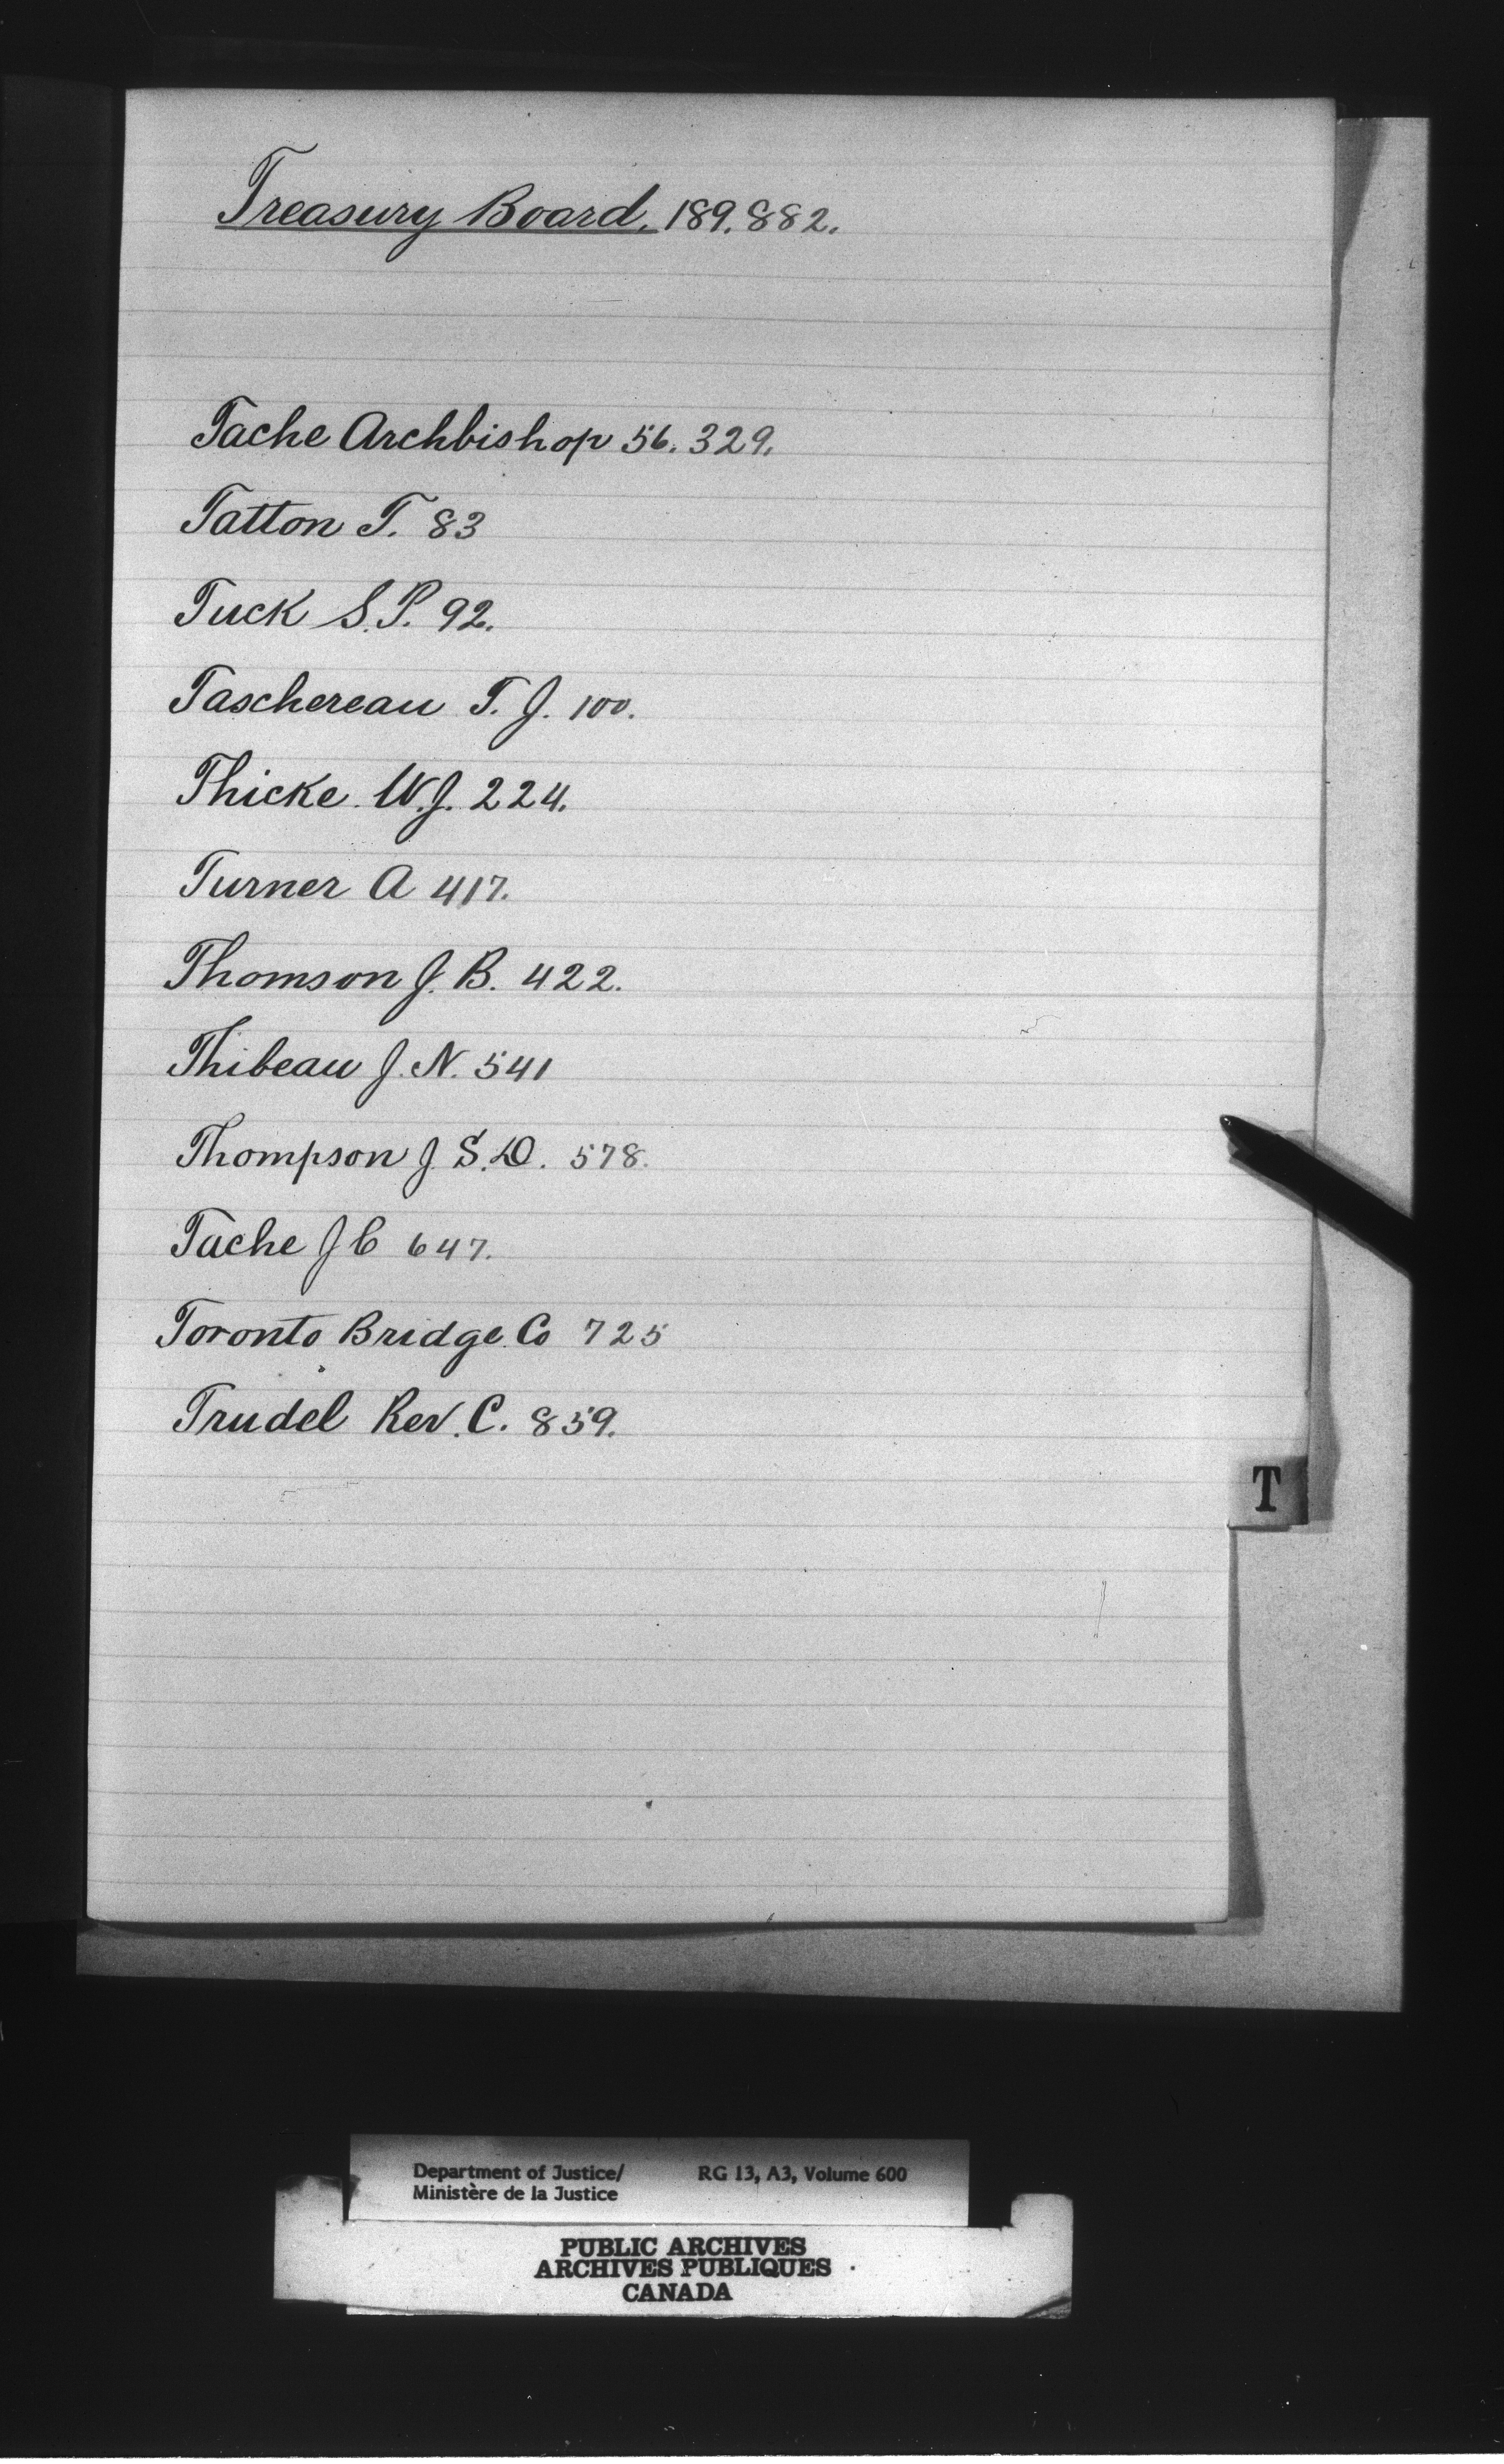 Treasury Board. 189. 882.
Tache Archbishop 56. 329.
Tatton T. 83
Tuck S. P. 92.
Taschereau T. J. 100.
Thicke W. J. 224.
Turner A 417.
Thomson J. B. 422.
Thibeau J. N. 541
Thompson J S. D. 578.
Tache J C 647.
Toronto Bridge Co 725
Trudel Rev. C. 859.
T
Department of Justice/ RG 13, A3, Volume 600
Ministère de la Justice
PUBLIC ARCHIVES
ARCHIVES PUBLIQUES
CANADA